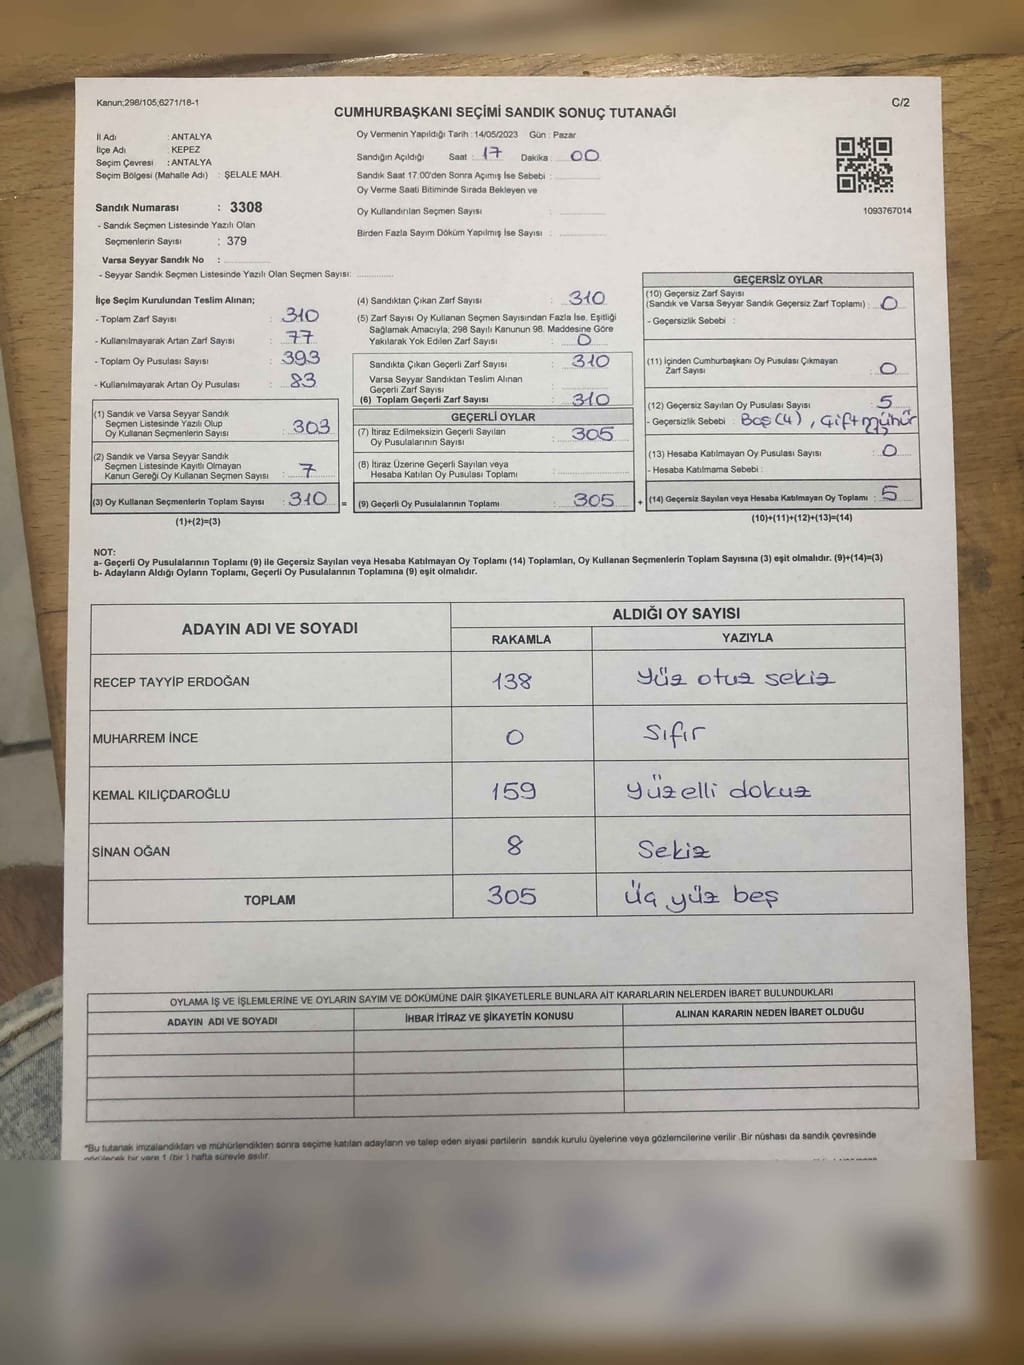 Kanun;298/105,6271/18-1
C/2
CUMHURBAŞKANI SEÇİMİ SANDIK SONUÇ TUTANAĞI
İl Adı : ANTALYA
İlçe Adı : KEPEZ
Seçim Çevresi : ANTALYA
Seçim Bölgesi (Mahalle Adı) : ŞELALE MAH.
Sandık Numarası : 3308
- Sandık Seçmen Listesinde Yazılı Olan
Seçmenlerin Sayısı : 379
Varsa Seyyar Sandık No :
- Seyyar Sandık Seçmen Listesinde Yazılı Olan Seçmen Sayısı:
Oy Vermenin Yapıldığı Tarih : 14/05/2023 Gün : Pazar
Sandığın Açıldığı Saat : 17 Dakika : 00
Sandık Saat 17:00'den Sonra Açımış İse Sebebi :
Oy Verme Saati Bitiminde Sırada Bekleyen ve
Oy Kullandırılan Seçmen Sayısı :
Birden Fazla Sayım Döküm Yapılmış İse Sayısı :
1093767014
İlçe Seçim Kurulundan Teslim Alınan;
- Toplam Zarf Sayısı : 310
- Kullanılmayarak Artan Zarf Sayısı : 77
- Toplam Oy Pusulası Sayısı : 393
- Kullanılmayarak Artan Oy Pusulası : 83
(1) Sandık ve Varsa Seyyar Sandık
Seçmen Listesinde Yazılı Olup
Oy Kullanan Seçmenlerin Sayısı : 303
(2) Sandık ve Varsa Seyyar Sandık
Seçmen Listesinde Kayıtlı Olmayan
Kanun Gereği Oy Kullanan Seçmen Sayısı : 7
(3) Oy Kullanan Seçmenlerin Toplam Sayısı : 310 =
(1)+(2)=(3)
(4) Sandıktan Çıkan Zarf Sayısı : 310
(5) Zarf Sayısı Oy Kullanan Seçmen Sayısından Fazla İse, Eşitliği
Sağlamak Amacıyla; 298 Sayılı Kanunun 98. Maddesine Göre
Yakılarak Yok Edilen Zarf Sayısı : 0
Sandıkta Çıkan Geçerli Zarf Sayısı : 310
Varsa Seyyar Sandıktan Teslim Alınan
Geçerli Zarf Sayısı :
(6) Toplam Geçerli Zarf Sayısı : 310
GEÇERLİ OYLAR
(7) İtiraz Edilmeksizin Geçerli Sayılan
Oy Pusulalarının Sayısı : 305
(8) İtiraz Üzerine Geçerli Sayılan veya
Hesaba Katılan Oy Pusulası Toplamı :
(9) Geçerli Oy Pusulalarının Toplamı : 305 +
GEÇERSİZ OYLAR
(10) Geçersiz Zarf Sayısı
(Sandık ve Varsa Seyyar Sandık Geçersiz Zarf Toplamı) : 0
- Geçersizlik Sebebi :
(11) İçinden Cumhurbaşkanı Oy Pusulası Çıkmayan
Zarf Sayısı : 0
(12) Geçersiz Sayılan Oy Pusulası Sayısı : 5
- Geçersizlik Sebebi : Boş (4) , Çift mühür
(13) Hesaba Katılmayan Oy Pusulası Sayısı : 0
- Hesaba Katılmama Sebebi :
(14) Geçersiz Sayılan veya Hesaba Katılmayan Oy Toplamı : 5
(10)+(11)+(12)+(13)=(14)
NOT:
a- Geçerli Oy Pusulalarının Toplamı (9) ile Geçersiz Sayılan veya Hesaba Katılmayan Oy Toplamı (14) Toplamları, Oy Kullanan Seçmenlerin Toplam Sayısına (3) eşit olmalıdır. (9)+(14)=(3)
b- Adayların Aldığı Oyların Toplamı, Geçerli Oy Pusulalarının Toplamına (9) eşit olmalıdır.
ADAYIN ADI VE SOYADI ALDIĞI OY SAYISI
RAKAMLA YAZIYLA
RECEP TAYYİP ERDOĞAN 138 yüz otuz sekiz
MUHARREM İNCE 0 sıfır
KEMAL KILIÇDAROĞLU 159 yüzelli dokuz
SİNAN OĞAN 8 Sekiz
TOPLAM 305 Üç yüz beş
OYLAMA İŞ VE İŞLEMLERİNE VE OYLARIN SAYIM VE DÖKÜMÜNE DAİR ŞİKAYETLERLE BUNLARA AİT KARARLARIN NELERDEN İBARET BULUNDUKLARI
ADAYIN ADI VE SOYADI İHBAR İTİRAZ VE ŞİKAYETİN KONUSU ALINAN KARARIN NEDEN İBARET OLDUĞU
*Bu tutanak imzalandıktan ve mühürlendikten sonra seçime katılan adayların ve talep eden siyasi partilerin sandık kurulu üyelerine veya gözlemcilerine verilir .Bir nüshası da sandık çevresinde
görülecek bir yere 1 (bir ) hafta süreyle asılır.